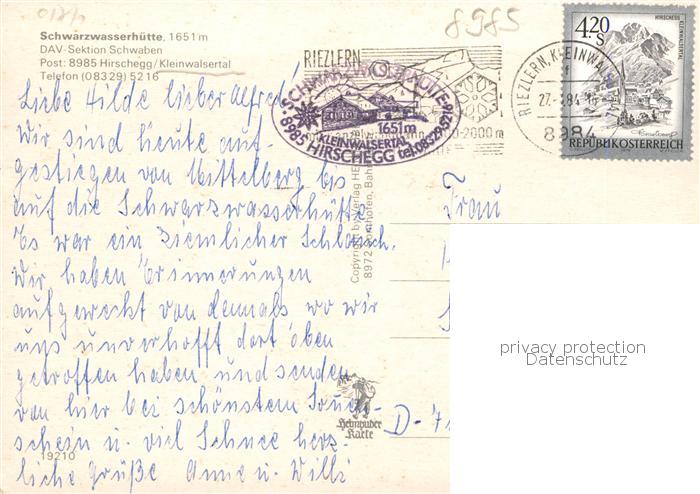 8985
Schwarzwasserhütte, 1651m
DAV-Sektion Schwaben
Post: 8985 Hirschegg/Kleinwalsertal
Telefon (08329) 5216
RIEZLERN
SCHWARZWASSERHÜTTE
1651m
KLEINWALSERTAL
8985 HIRSCHEGG tel.08329/5216
-2000 m
RIEZLERN, KLEINWAL
84
8984
HIRSCHEGG
KLEINWALSERTAL
4.20
S
REPUBLIK ÖSTERREICH
Liebe Hilde lieber Alfred
Wir sind heute auf-
gestiegen von Mittelberg bis
auf die Schwarzwasserhütte.
Es war ein ziemlicher Schlauch.
Wir haben Erinnerungen
aufgeweckt von damals wo wir
uns unverhofft dort oben
getroffen haben und senden
von hier bei schönstem Sonn-
schein u. viel Schnee herz-
liche Grüße Anne u. Willi
19210
Copyright by Verlag
8972 Sonthofen, Bahn
Heimhuber
Karte
Frau
D-71
privacy protection
Datenschutz